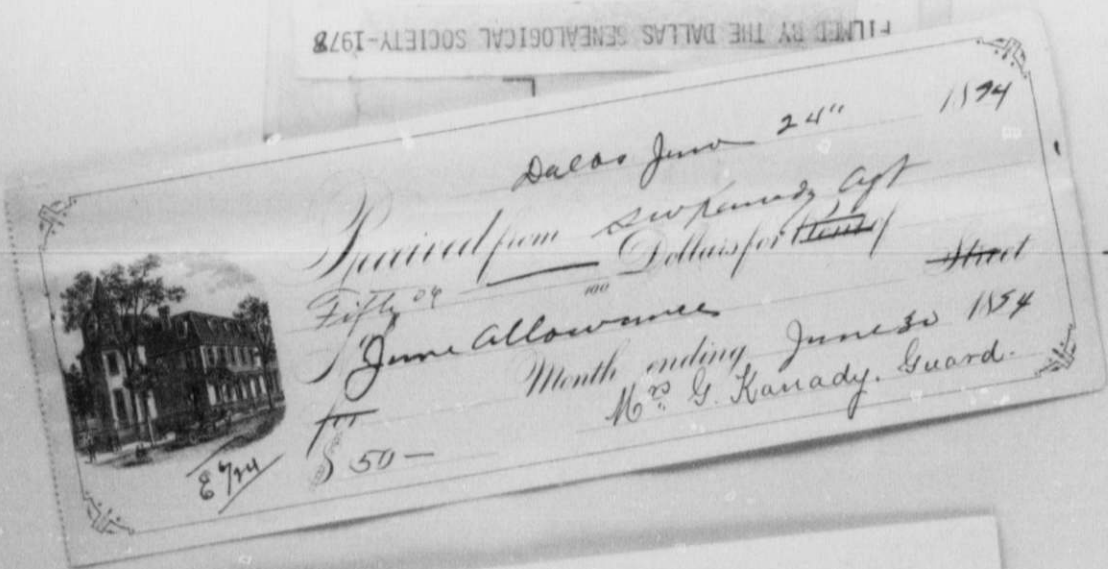 FILMED BY THE DALLAS GENEALOGICAL SOCIETY-1978
Dallas June 24" 1894
Received from S W Kennedy Agt
Fifty 00/100 Dollars for Rent of
Street
June Allowance
for Month ending June 30 1894
$ 50 — Mrs. G. Kanady. Guard.